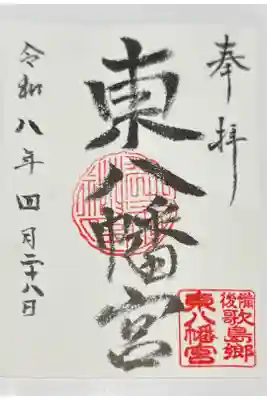 奉拝
東八幡宮
令和八年四月二十八日
備後歌島郷
東八幡宮